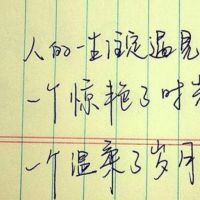 人的一生注定遇见
一个惊艳了时光
一个温柔了岁月